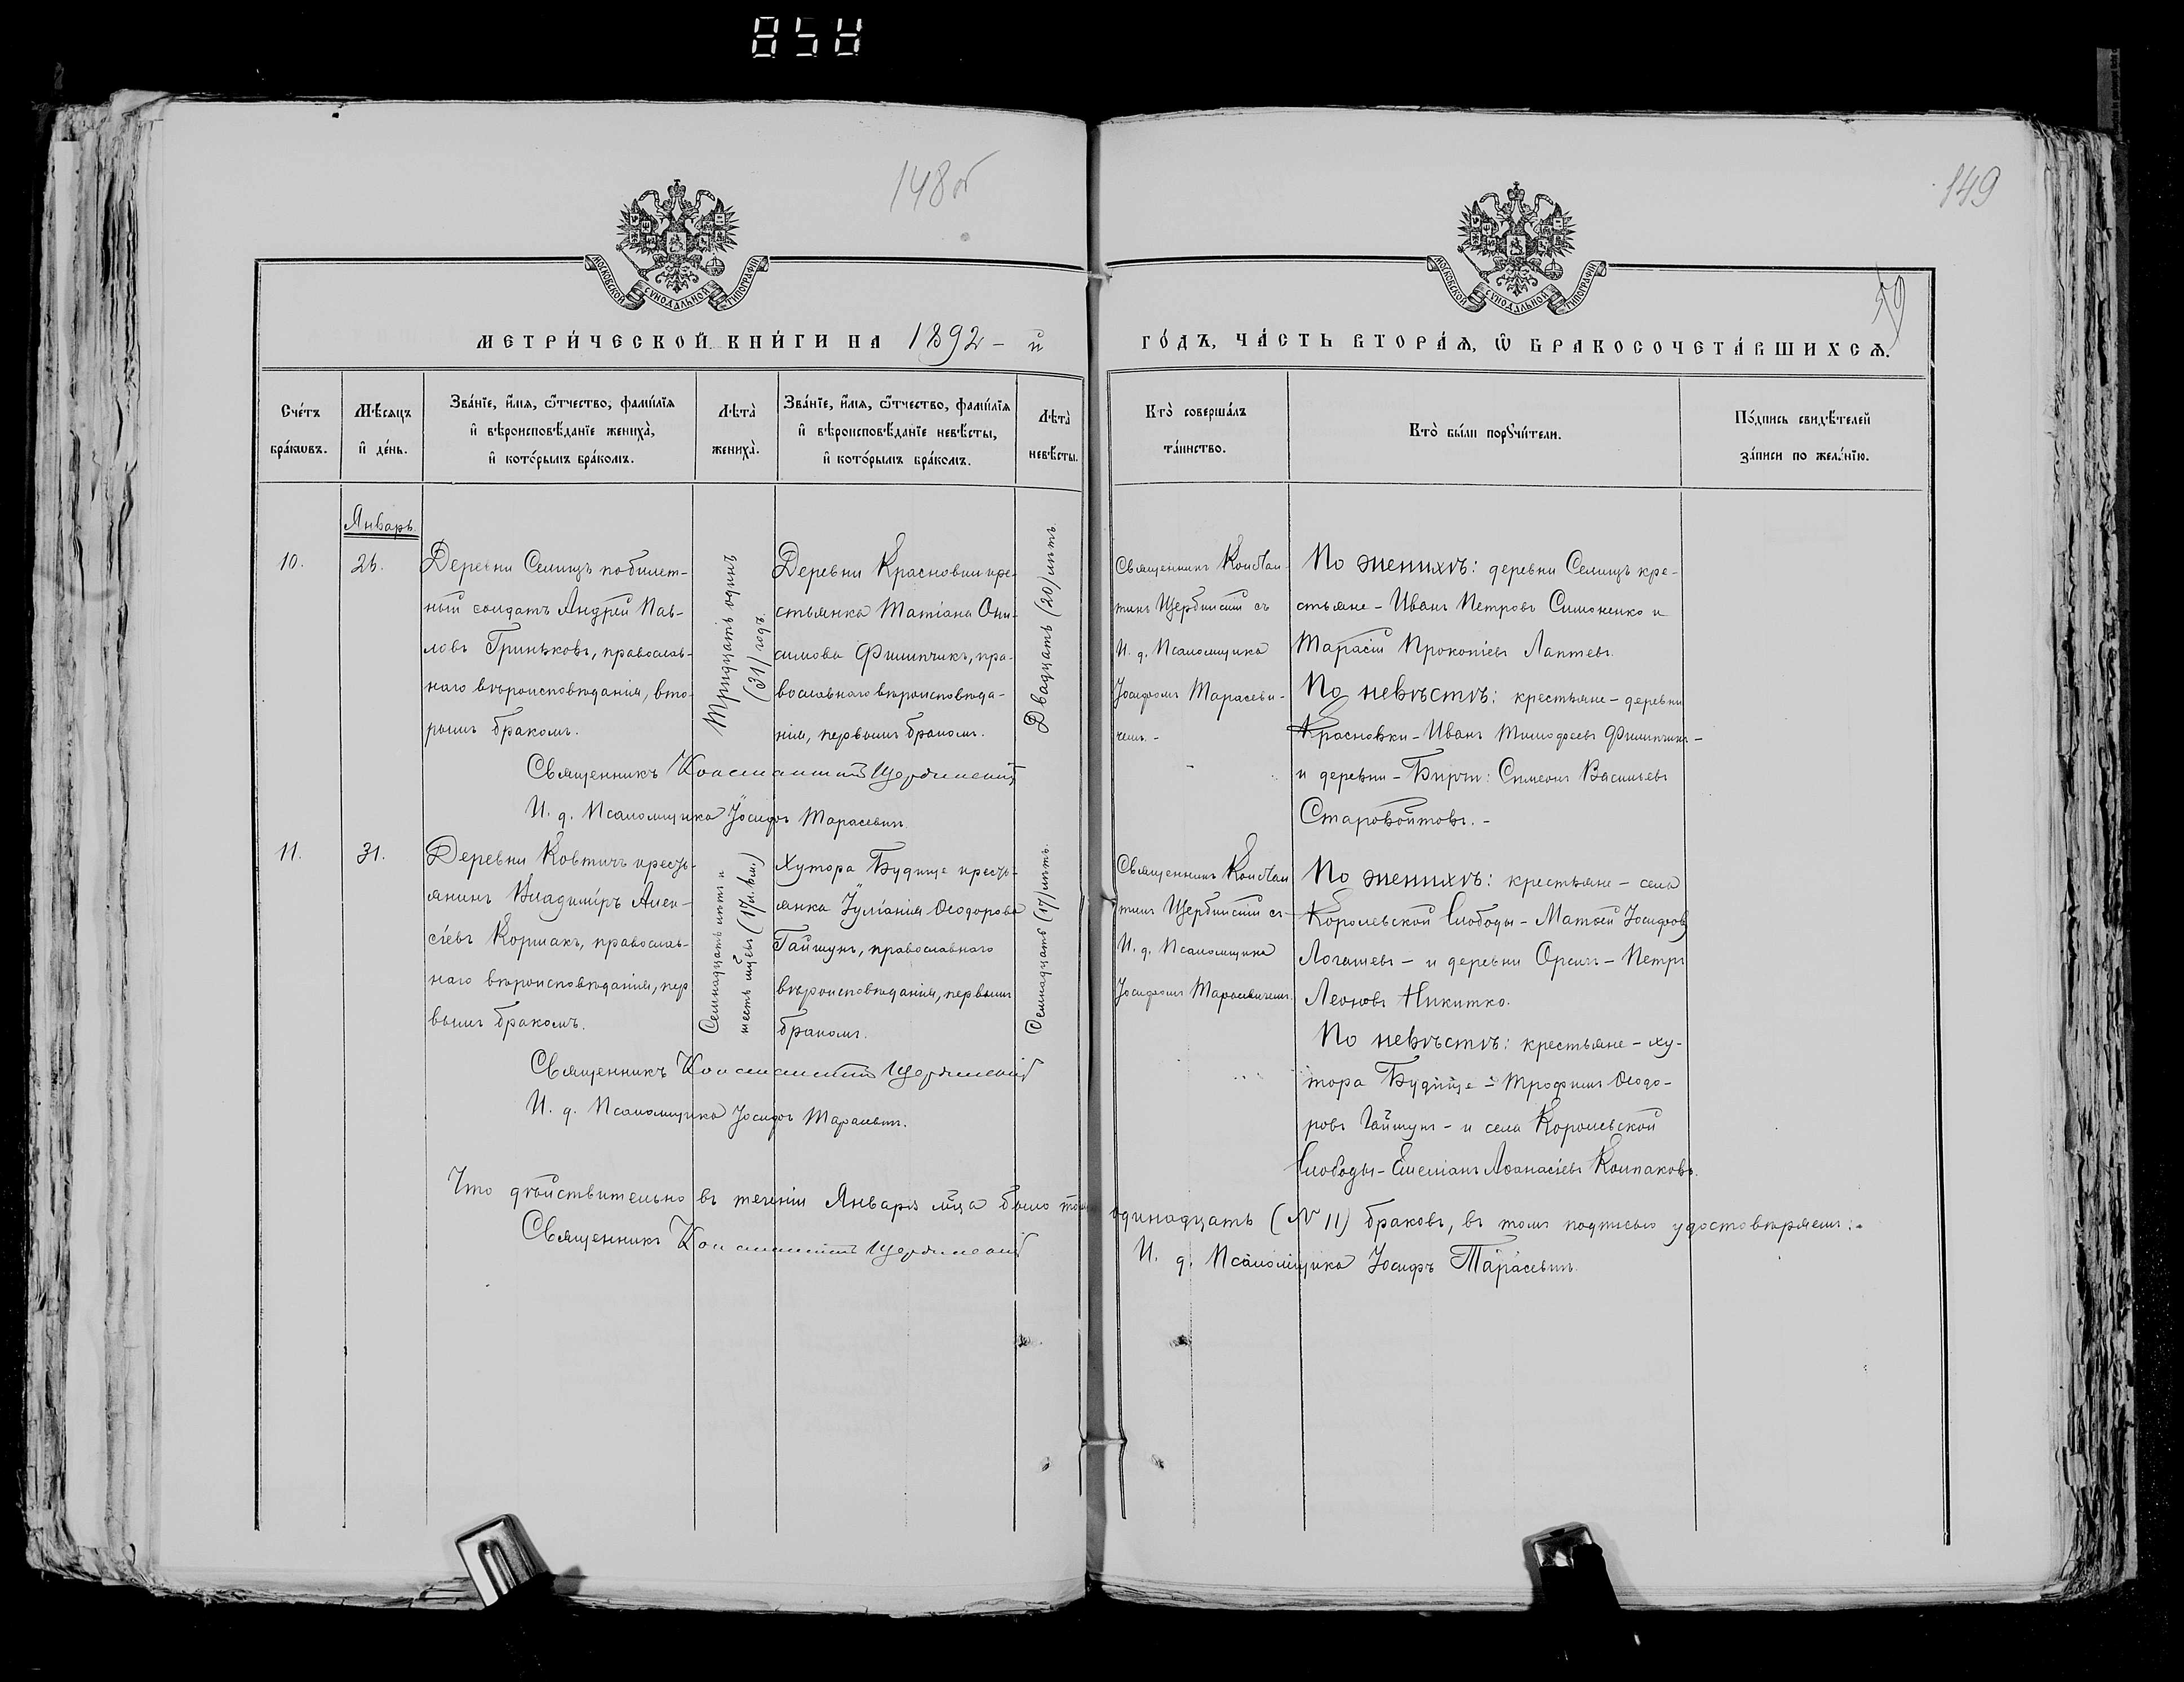 148 об
149
59
МОСКОВСКОЙ СѴНОДАЛЬНОЙ ТИПОГРАФІИ
МОСКОВСКОЙ СѴНОДАЛЬНОЙ ТИПОГРАФІИ
МЕТРИ́ЧЕСКОЙ КНИ́ГИ НА 1892 - й
ГО́ДЪ, ЧА́СТЬ ВТОРА́Я, Ѽ БРАКОСОЧЕТА́ВШИХСЯ.
Сче́тъ
бра́ковъ.
Мѣ́сяцъ
и де́нь.
Зва́нїе, и́мя, ѻ́тчество, фами́лїя
и вѣроисповѣ́данїе жениха̀,
и кото́рымъ бра́комъ.
Лѣта̀
жениха̀.
Зва́нїе, и́мя, ѻ́тчество, фами́лїя
и вѣроисповѣ́данїе невѣ́сты,
и кото́рымъ бра́комъ.
Лѣта̀
невѣ́сты.
Кто̀ соверша́лъ
та́инство.
Кто̀ бы́ли порꙋчи́тели.
По́дпись свидѣ́телей
за́писи по жела́нїю.
Январь.
10.
26.
Деревни Селищъ побилет-
ный солдатъ Андрей Пав-
ловъ Гриньковъ, православ-
наго вѣроисповѣданія, вто-
рымъ бракомъ.
Тридцать одинъ
(31) годъ.
Деревни Красновки кре-
стьянка Татіана Они-
симова Филипчикъ, пра-
вославнаго вѣроисповѣда-
нія, первымъ бракомъ.
Двадцать (20) лѣтъ.
Священникъ Констан-
тинъ Щербинскій съ
И. д. Псаломщика
Іосифомъ Тарасеви-
чемъ. -
По женихѣ: деревни Селищъ кре-
стьяне - Иванъ Петровъ Симоненко и
Тарасій Прокопіевъ Лаптевъ.
По невѣстѣ: крестьяне - деревни
Красновки - Иванъ Тимофеевъ Филипчикъ -
и деревни - Бирчи: Симеонъ Васильевъ
Старовойтовъ. -
Священникъ Константинъ Щербинскій
И. д. Псаломщика Іосифъ Тарасевичъ.
11.
31.
Деревни Ковтичъ кресть-
янинъ Владиміръ Алек-
сіевъ Кормакъ, православ-
наго вѣроисповѣданія, пер
вымъ бракомъ.
Семнадцать лѣтъ и
шесть мцевъ (17 л. 6 м.)
Хутора Будище кресть-
янка Іуліанія Ѳеодорова
Гайшунъ, православнаго
вѣроисповѣданія, первымъ
бракомъ.
Семнадцать (17) лѣтъ.
Священникъ Констан
тинъ Щербинскій съ
И. д. Псаломщика
Іосифомъ Тарасевичемъ.
По женихѣ: крестьяне - села
Королевской Слободы - Матѳей Іосифовъ
Логашевъ - и деревни Орсичъ - Петръ
Леоновъ Никитко.
По невѣстѣ: крестьяне - ху-
тора Будище - Трофимъ Ѳеодо-
ровъ Гайшунъ - и села Королевской
Слободы - Емеліанъ Аѳанасіевъ Колпаковъ.
Священникъ Константинъ Щербинскій
И. д. Псаломщика Іосифъ Тарасевичъ.
Что дѣйствительно въ теченіи Января мца было одинадцать (№ 11) браковъ, въ томъ подписью удостовѣряемъ:
Священникъ Константинъ Щербинскій
И. д. Псаломщика Іосифъ Тарасевичъ.